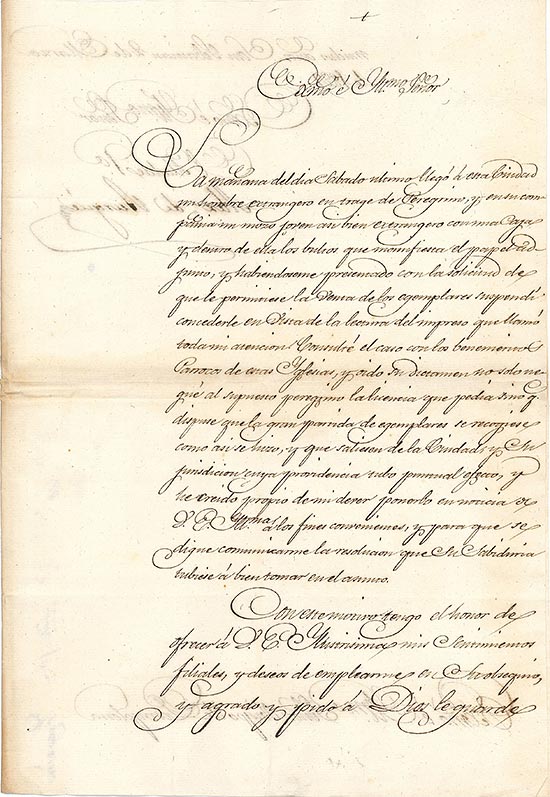 Exmo. é Yllmo. Señor
La mañana del dia Sabado ultimo llegó á esta Ciudad
un hombre extrangero en traje de Peregrino, y en su com
pañia un mozo joven asi bien extrangero con una Caja
y dentro de ella los bultos que manifiesta el papel ad
junto, y habiendoseme presentado con la solicitud de
que le permitiese la Venta de los egemplares suspendí
concederle en Vista de la lectura del impreso que llamó
toda mi atencion. Consulté el caso con los benemeritos
Parrocos de estas Yglesias, y oido su dictamen no solo ne
gué al supuesto peregrino la licencia que pedia sino q.
dispuse que la gran partida de egemplares se recogiese
como asi se hizo, y que saliesen de la Ciudad y Su
jurisdicion cuya providencia tubo puntual efecto, y
he creido propio de mi deber ponerlo en noticia de
V. E. Yllma. á los fines convenientes, y para que se
digne comunicarme la resolucion que Su Sabiduria
tubiese á bien tomar en el asunto.
Con este motivo tengo el honor de
ofrecer á V. E. Yllustrisima mis Sentimientos
filiales, y deseos de emplearme en Su obsequio,
y agrado y pido á Dios le guarde